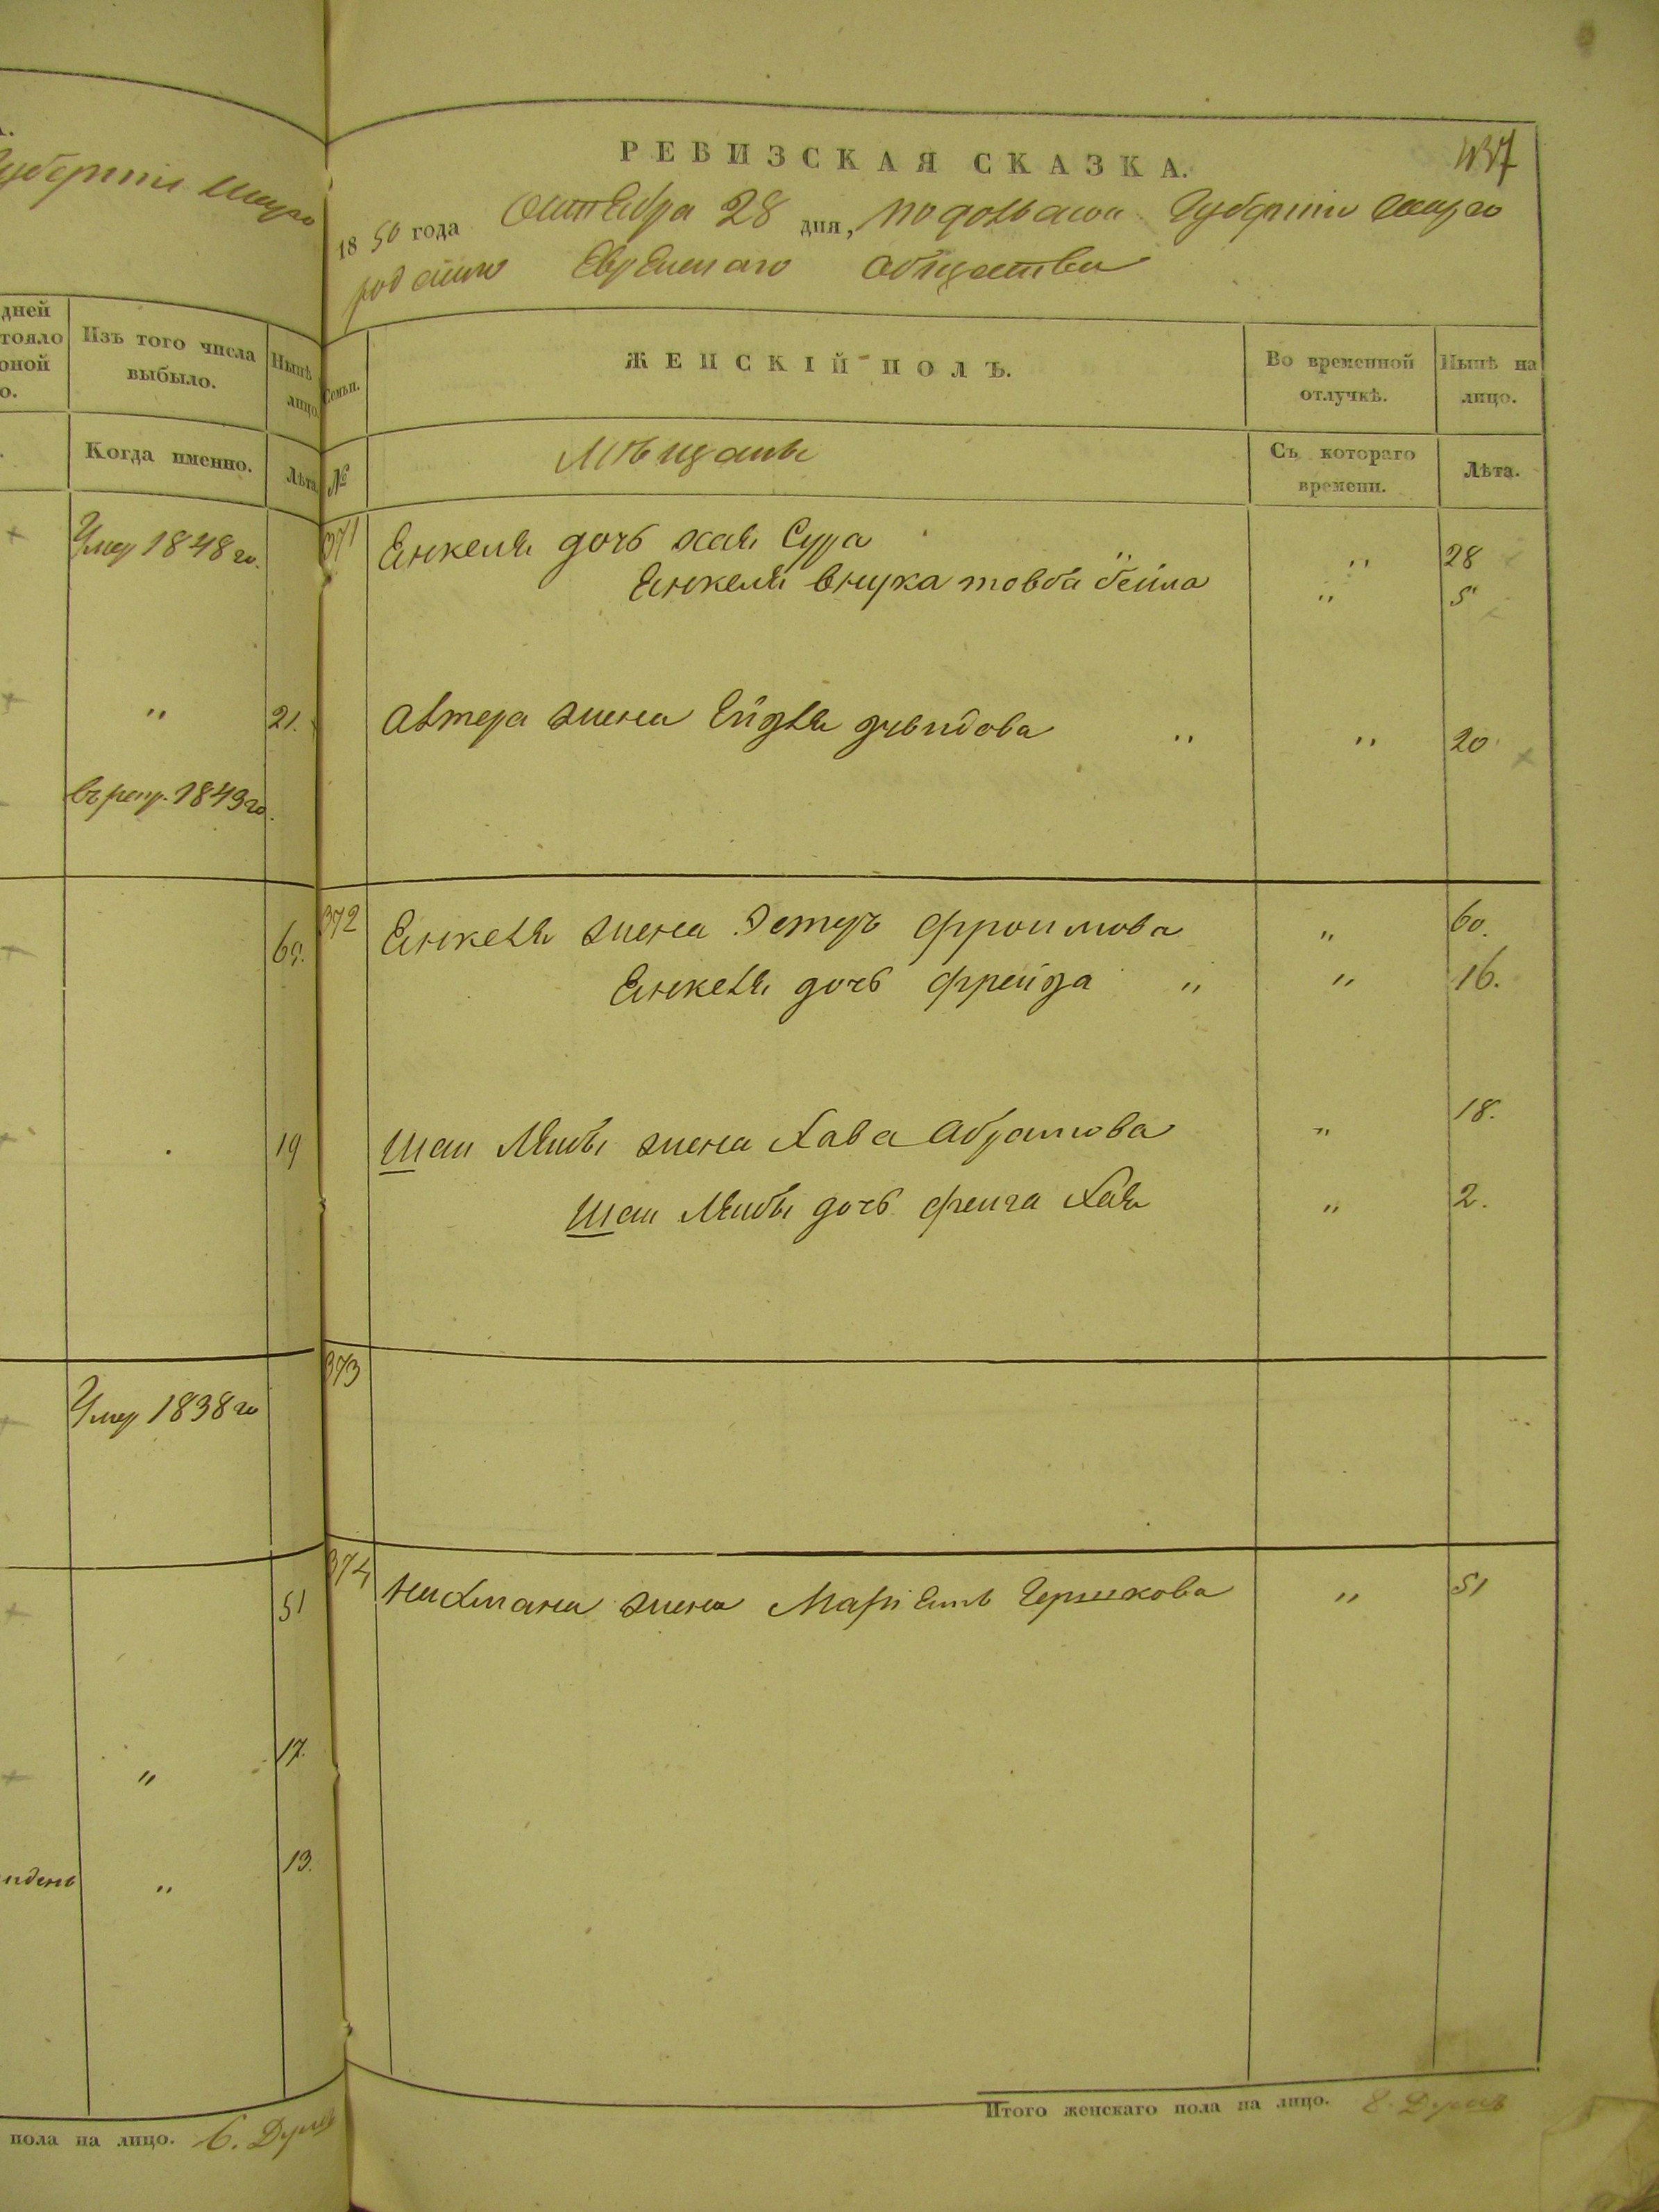 губерніи
дней
Изъ того числа
выбыло.
Нынѣ
лицо.
Когда именно.
Лѣта.
Умер 1848 го.
"
21.
въ рекр. 1849 го.
60.
19
Умер 1838 го
51
"
17.
"
13.
пола на лицо. 6. Душъ
РЕВИЗСКАЯ СКАЗКА.
437
1850 года Октября 28 дня, Подольской Губерніи
Еврейскаго общества
Семьи.
ЖЕНСКІЙ ПОЛЪ.
Во временной
отлучкѣ.
Нынѣ на
лицо.
№
Мѣщане
Съ котораго
времени.
Лѣта.
371 Янкеля дочь Хая Сура " 28
Янкеля внука товба бейла " 5
жена Ейдля " " 20
372 Янкеля жена Эстеръ Фроимова " 60.
Янкеля дочь Фрейда " " 16.
Шаи Лейбы жена Хава Абрамова " 18.
Шаи Лейбы дочь Фейга Хая " 2.
373
374 Нахмана жена Маріемъ Гершкова " 51
Итого женскаго пола на лицо. 8. Душъ